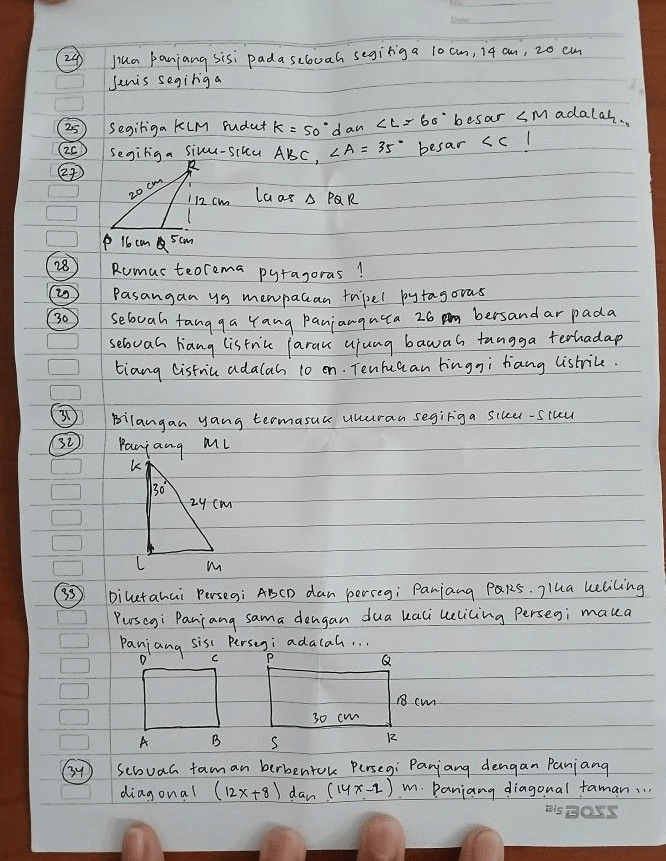 Date:
24 Jika panjang sisi pada sebuah segitiga 10 cm, 14 cm, 20 cm
Jenis segitiga
25 Segitiga KLM Sudut K = 50° dan ∠L = 60° besar ∠M adalah...
26 Segitiga siku-siku ABC, ∠A = 35° besar ∠C !
27
R
20 cm
12 cm
Luas △ PQR
P 16 cm Q 5 cm
28 Rumus teorema pytagoras !
29 Pasangan yg merupakan tripel pytagoras
30 Sebuah tangga yang panjangnya 26 m bersandar pada
sebuah tiang listrik jarak ujung bawah tangga terhadap
tiang listrik adalah 10 m. Tentukan tinggi tiang listrik.
31 Bilangan yang termasuk ukuran segitiga siku-siku
32 Panjang ML
K
30°
24 cm
L M
33 Diketahui Persegi ABCD dan persegi Panjang PQRS. Jika keliling
Persegi Panjang sama dengan dua kali keliling Persegi maka
Panjang sisi Persegi adalah...
D C P Q
18 cm
30 cm
A B S R
34 Sebuah taman berbentuk Persegi Panjang dengan Panjang
diagonal (12x+8) dan (14x-2) m. Panjang diagonal taman...
Big BOSS